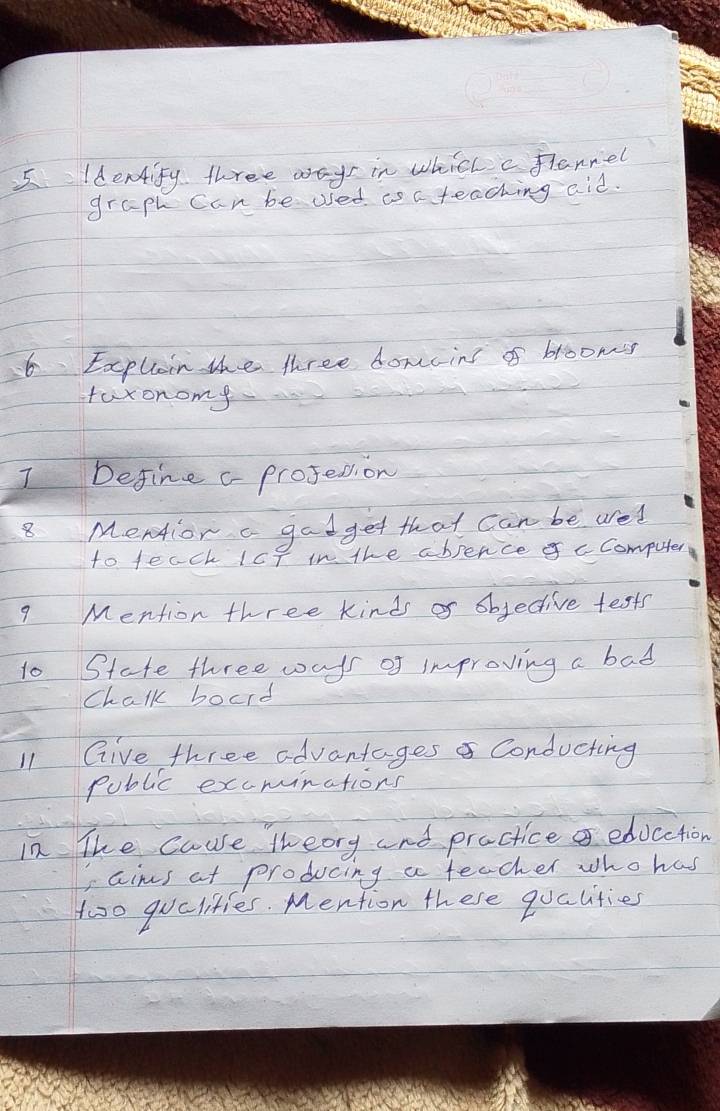 Date
5 Identify three ways in which a flannel
graph can be used as a teaching aid.
6 Explain the three domains of bloom's
taxonomy
7 Define a profession
8 Mention a gadget that can be used
to teach ICT in the absence of a Computer
9 Mention three kinds of objective tests
10 State three ways of improving a bad
chalk board
11 Give three advantages of conducting
public examinations
12 The cause theory and practice of education
aims at producing a teacher who has
two qualities. Mention these qualities